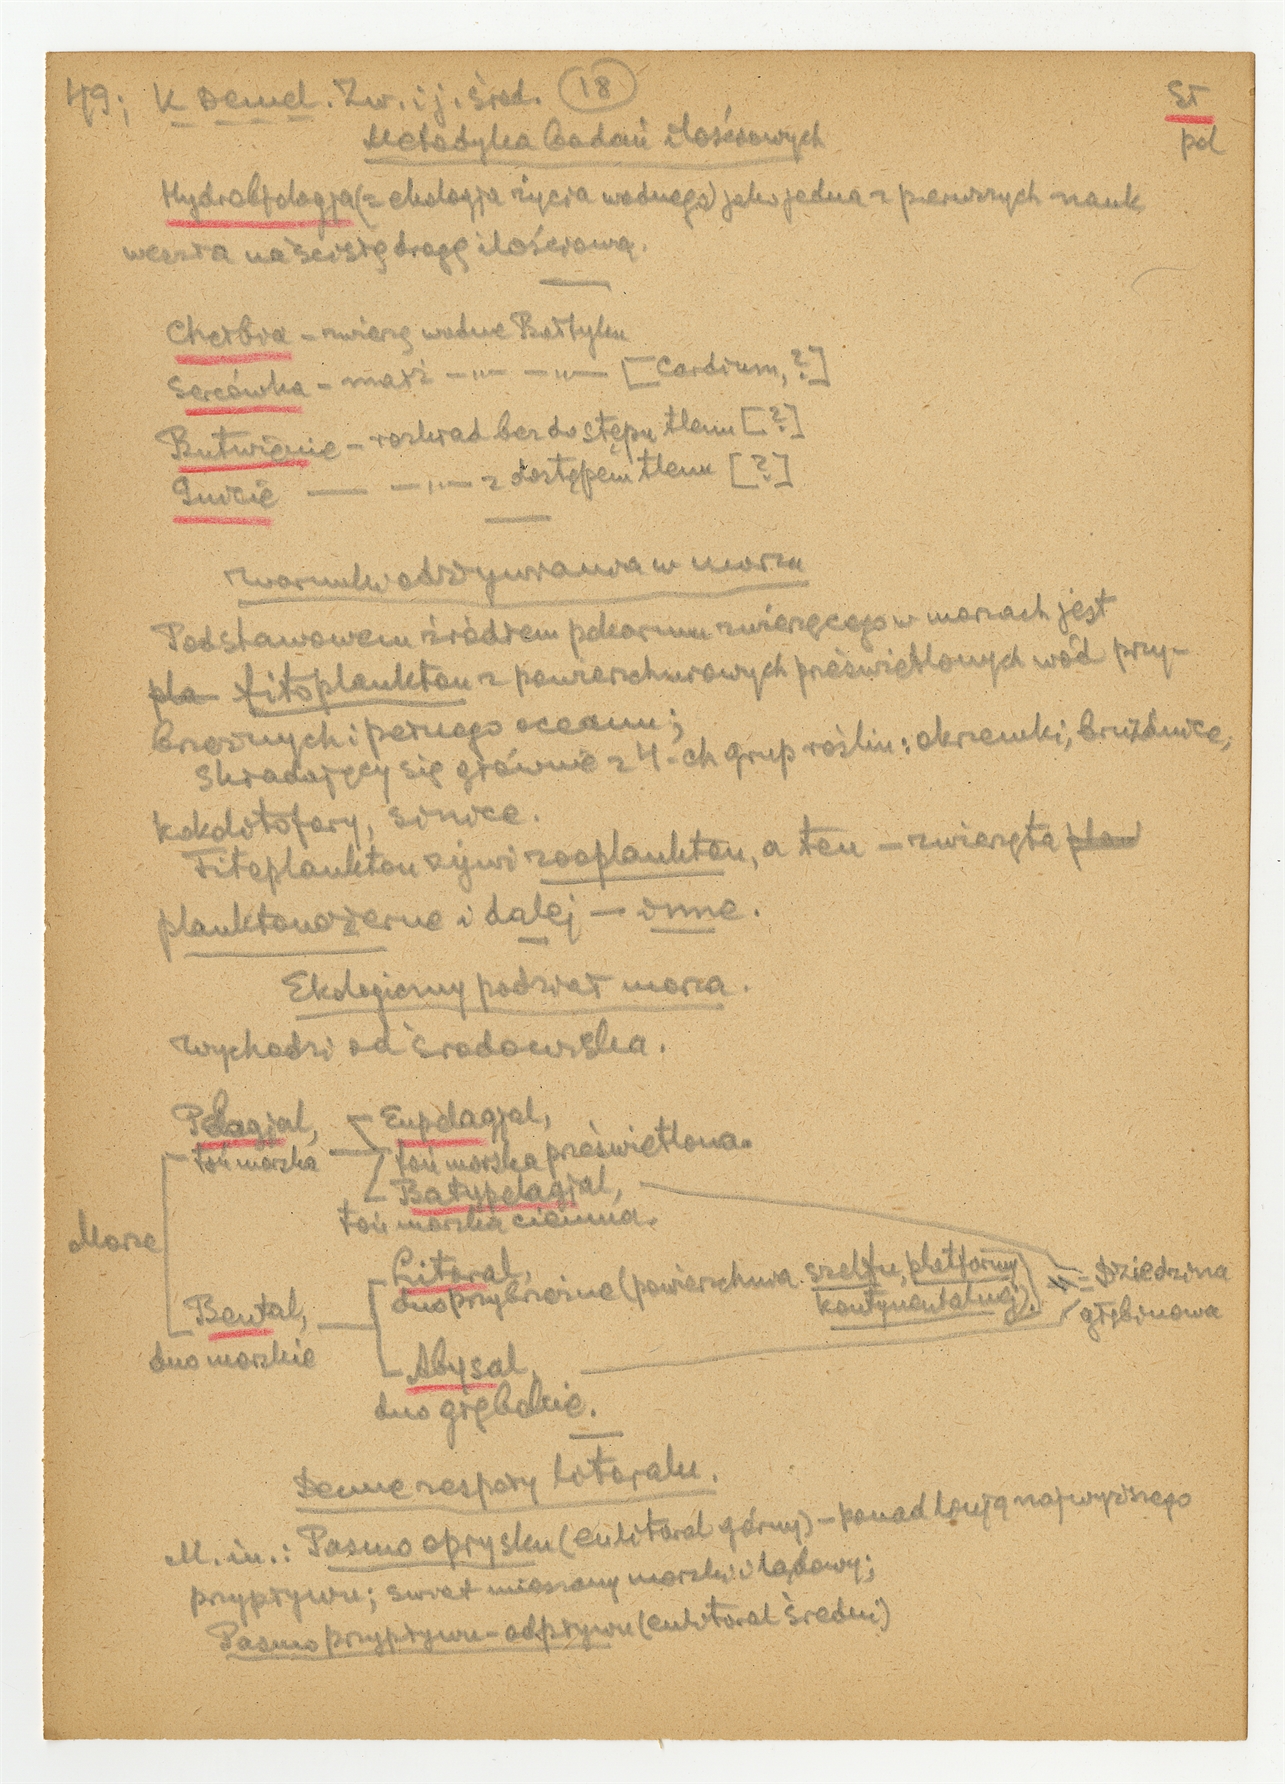 49; K Demel. Zw. i j. środ. 18
Sł
pol
Metodyka badań ilościowych
Hydrobjologja (= ekologja życia wodnego) jako jedna z pierwszych nauk
weszła na ścisłą drogę ilościową.
Chełbia – zwierzę wodne Bałtyku
Sercówka – małż –„– –„– [Cardium, ?]
Butwienie – rozkład bez dostępu tlenu [?]
Gnicie — –„– z dostępem tlenu [?]
Warunki odżywiania w morzu
Podstawowem źródłem pokarmu zwierzęcego w morzach jest
pla fitoplankton z powierzchniowych prześwietlonych wód przy-
brzeżnych i pełnego oceanu;
składający się głównie z 4-ch grup roślin: okrzemki, bruzdnice,
kokolitofory, sinice.
Fitoplankton żywi zooplankton, a ten – zwierzęta plan
planktonożerne i dalej – inne.
Ekologiczny podział morza.
Wychodzi od środowiska.
Pelagjal, Eupelagjal,
toń morska toń morska prześwietlona.
Batypelagjal,
toń morska ciemna.
Morze
Litoral,
dno przybrzeżne (powierzchnia szelfu, platformy
kontynentalnej).
= Dziedzina
głębinowa
Bental,
dno morskie
Abysal,
dno głębokie.
Denne zespoły litoralu.
M. in.: Pasmo oprysku (eulitoral górny) – ponad linją najwyższego
przypływu; świat mieszany morski i lądowy;
Pasmo przypływu-odpływu (eulitoral średni)